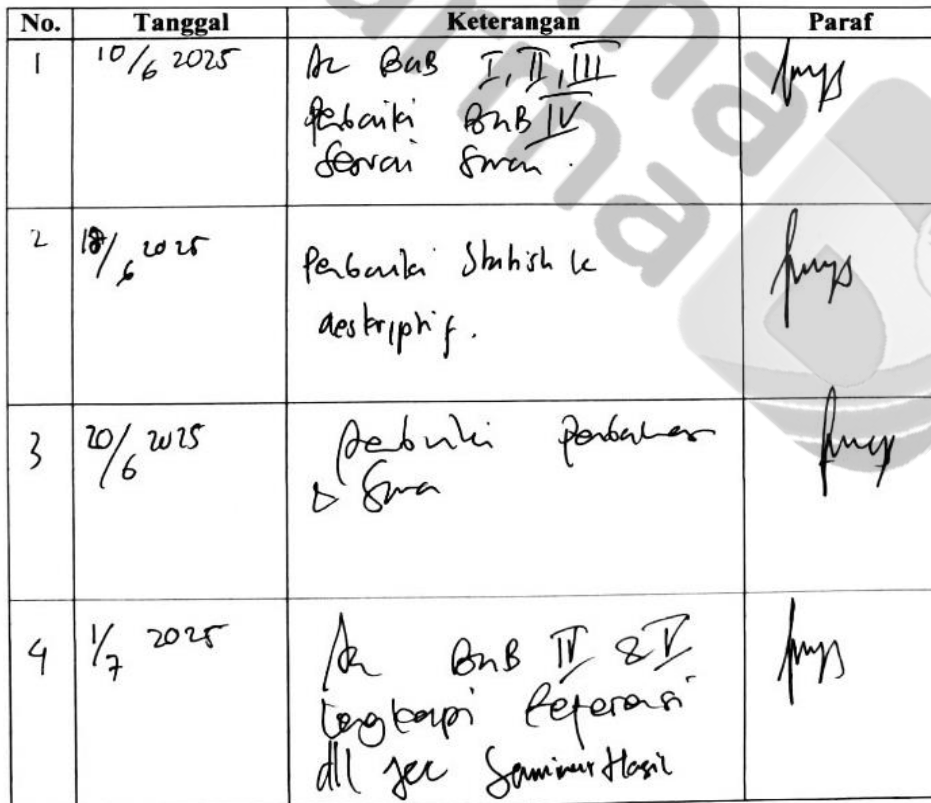 No. Tanggal Keterangan Paraf
1 10/6 2025 Acc BAB I, II, III
Perbaiki BAB IV
Sesuai Saran.
2 18/6 2025 Perbaiki Statistik
deskriptif.
3 20/6 2025 Perbaiki
Saran
4 1/7 2025 Acc BAB IV & V
Lengkapi Referensi
dll Seminar Hasil